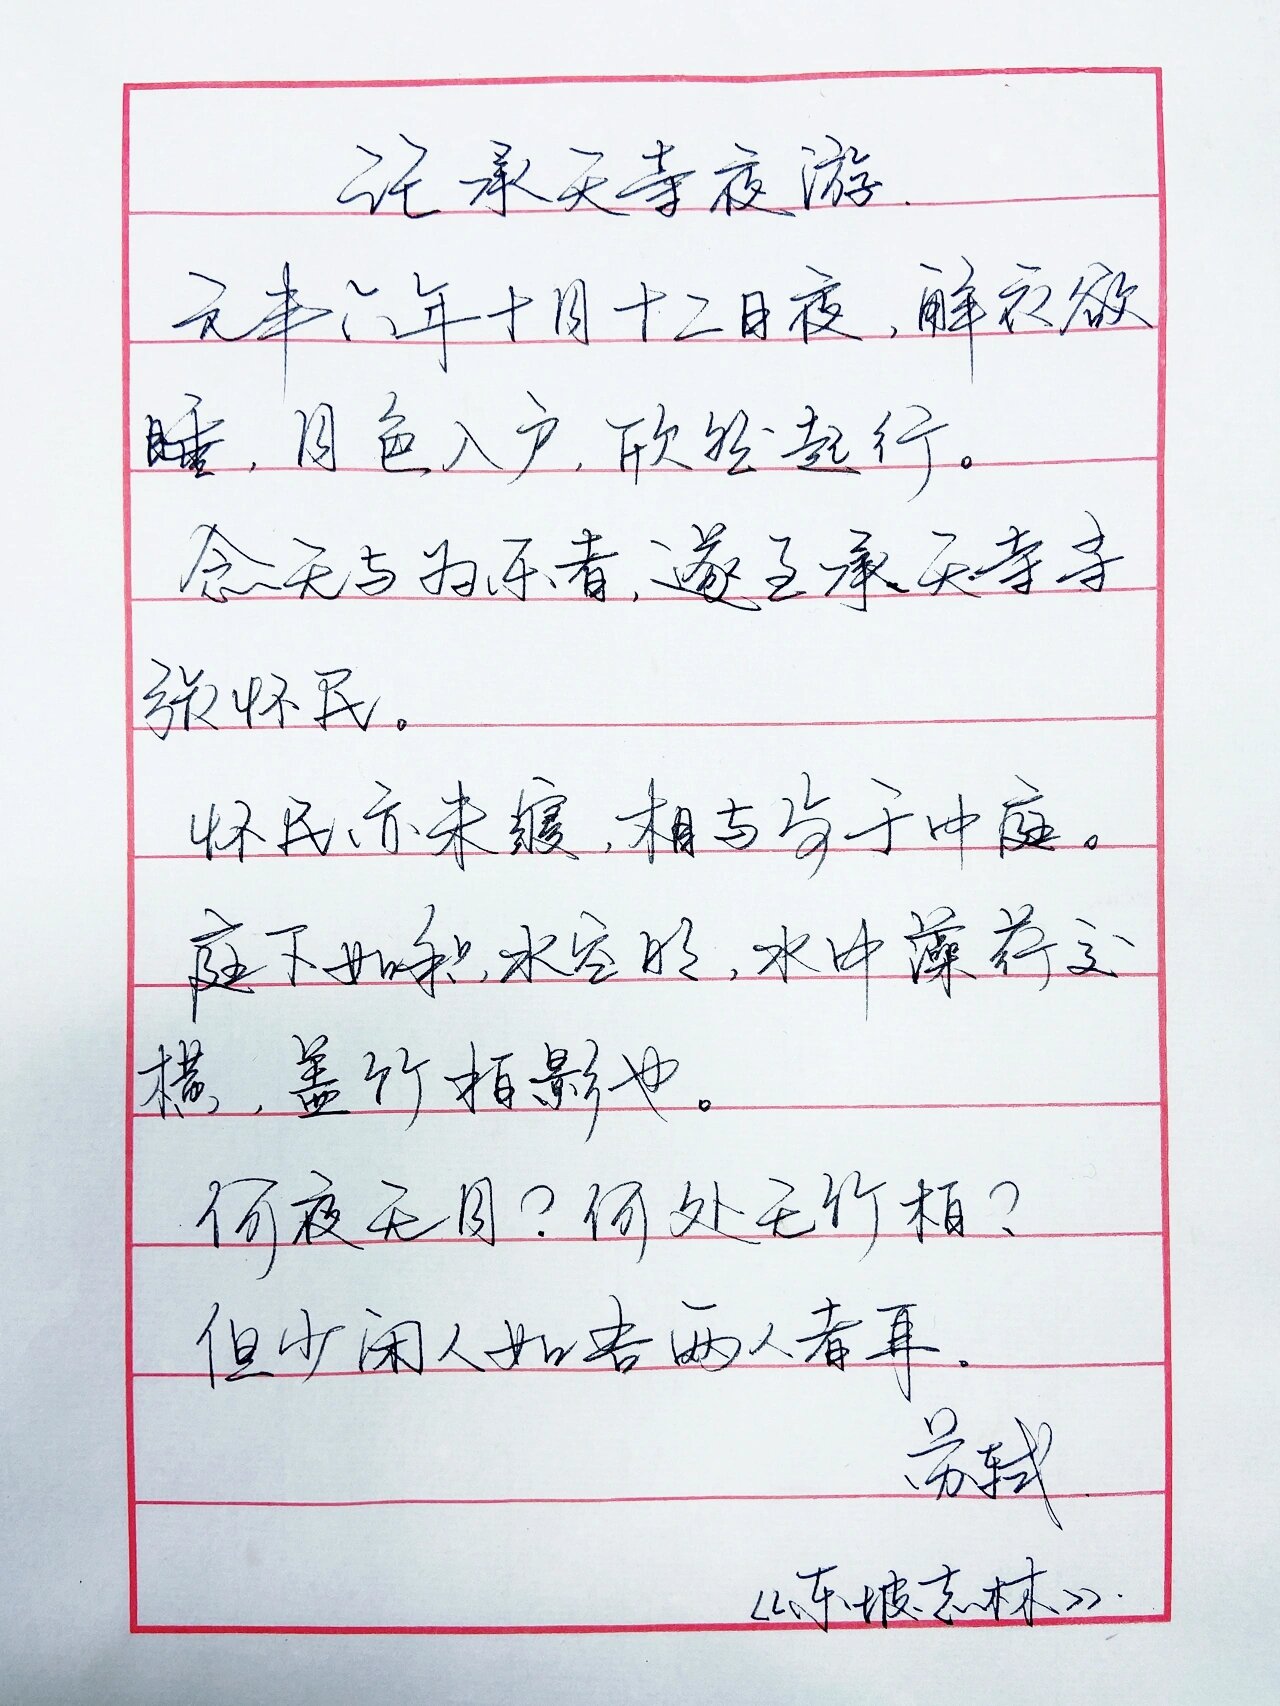 记承天寺夜游.
元丰六年十月十二日夜,解衣欲
睡,月色入户,欣然起行。
念无与为乐者,遂至承天寺寻
张怀民。
怀民亦未寝,相与步于中庭。
庭下如积水空明,水中藻荇交
横,盖竹柏影也。
何夜无月?何处无竹柏?
但少闲人如吾两人者耳.
苏轼.
《东坡志林》.